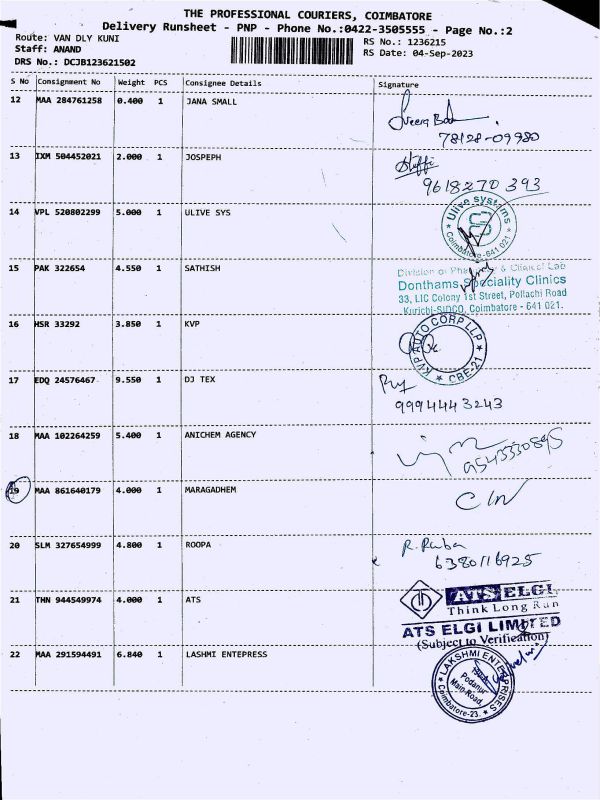 THE PROFESSIONAL COURIERS, COIMBATORE
Delivery Runsheet - PNP - Phone No.:0422-3505555 - Page No.:2
Route: VAN DLY KUNI
RS No.: 1236215
Staff: ANAND
RS Date: 04-Sep-2023
DRS No.: DCJB123621502
S No Consignment No Weight PCS Consignee Details Signature
12 MAA 284761258 0.400 1 JANA SMALL
78128-09980
13 IXM 504452021 2.000 1 JOSPEPH
9618270 393
14 VPL 520802299 5.000 1 ULIVE SYS
Ulive systems
Coimbatore-641 021
15 PAK 322654 4.550 1 SATHISH
Division of & Clinical Lab
Donthams Speciality Clinics
33, LIC Colony 1st Street, Pollachi Road
Kurichi-SIDCO, Coimbatore - 641 021.
16 HSR 33292 3.850 1 KVP
KVP AUTO CORP LLP
CBE-21
17 EDQ 24576467 9.550 1 DJ TEX
9994443243
18 MAA 102264259 5.400 1 ANICHEM AGENCY
9543330895
19 MAA 861640179 4.000 1 MARAGADHEM
20 SLM 327654999 4.800 1 ROOPA
6380116925
21 THN 944549974 4.000 1 ATS
ATS ELGI
Think Long Run
ATS ELGI LIMITED
(Subject to Verification)
22 MAA 291594491 6.840 1 LASHMI ENTEPRESS
LAKSHMI ENTERPRISES
Podanur
Main-Road,
Coimbatore-23.